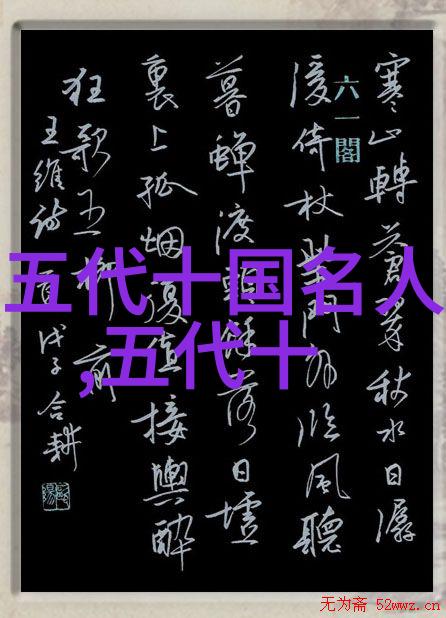 寒山轉蒼翠秋水日潺
六一閣
湲倚杖柴門外臨風聽
暮蟬渡頭餘落日墟
裏上孤烟復值接輿醉
狂歌五柳前
王維詩一首戊子合耕
五代十国名人
,五代十
无为斋 52wwz.cn